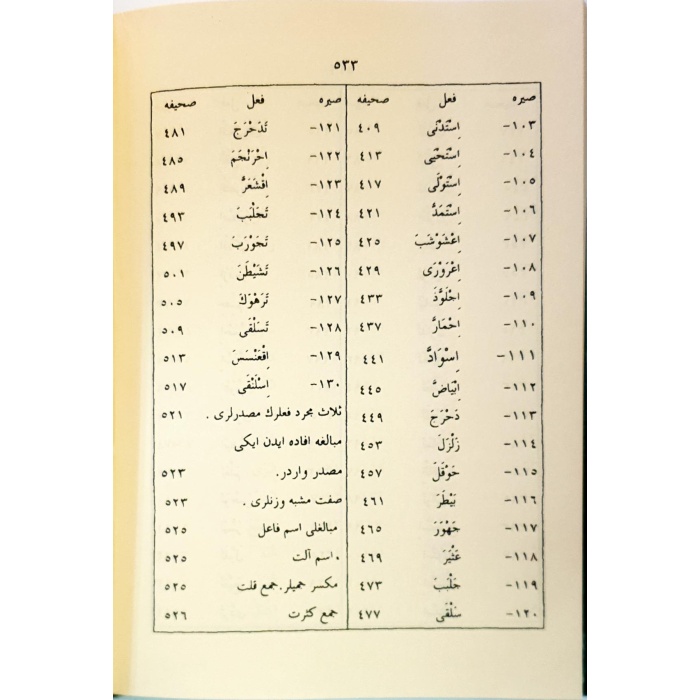 ٥٣٣
صيره فعل صحيفه
١٠٣- اِسْتَدْنٰى ٤٠٩
١٠٤- اِسْتَحْيٰى ٤١٣
١٠٥- اِسْتَوْلٰى ٤١٧
١٠٦- اِسْتَمَدَّ ٤٢١
١٠٧- اِعْشَوْشَبَ ٤٢٥
١٠٨- اِعْرَوْرٰى ٤٢٩
١٠٩- اِجْلَوَّذَ ٤٣٣
١١٠- اِحْمَارَّ ٤٣٧
١١١- اِسْوَادَّ ٤٤١
١١٢- اِبْيَاضَّ ٤٤٥
١١٣- دَحْرَجَ ٤٤٩
١١٤- زَلْزَلَ ٤٥٣
١١٥- حَوْقَلَ ٤٥٧
١١٦- بَيْطَرَ ٤٦١
١١٧- جَهْوَرَ ٤٦٥
١١٨- عَثْيَرَ ٤٦٩
١١٩- جَلْبَبَ ٤٧٣
١٢٠- سَلْقٰى ٤٧٧
صيره فعل صحيفه
١٢١- تَدَحْرَجَ ٤٨١
١٢٢- اِحْرَنْجَمَ ٤٨٥
١٢٣- اِقْشَعَرَّ ٤٨٩
١٢٤- تَجَلْبَبَ ٤٩٣
١٢٥- تَجَوْرَبَ ٤٩٧
١٢٦- تَشَيْطَنَ ٥٠١
١٢٧- تَرَهْوَكَ ٥٠٥
١٢٨- تَسَلْقٰى ٥٠٩
١٢٩- اِقْعَنْسَسَ ٥١٣
١٣٠- اِسْلَنْقٰى ٥١٧
ثلاث مجرد فعلرك مصدرلرى . ٥٢١
مبالغه افاده ايدن ايكى
مصدر واردر. ٥٢٣
صفت مشبه وزنلرى . ٥٢٣
مبالغلى اسم فاعل ٥٢٥
. اسم آلت ٥٢٥
مكسر جميلر. جمع قلت ٥٢٥
جمع كثرت ٥٢٦